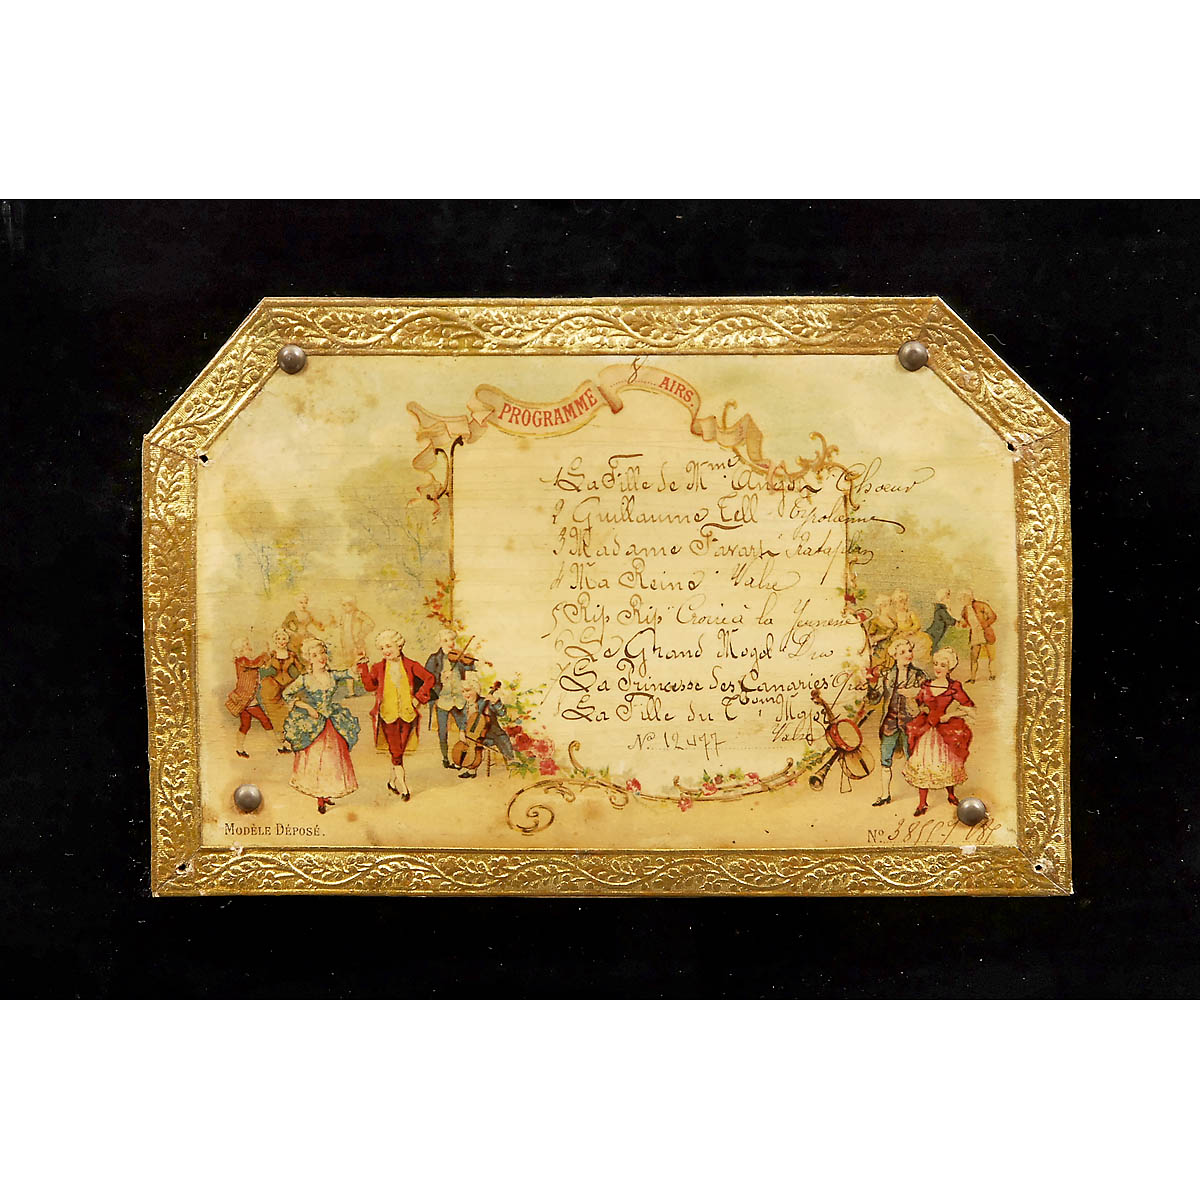 PROGRAMME 8 AIRS.
1 La Fille de Mme Angot Chœur
2 Guillaume Tell Tyrolienne
3 Madame Favart Rataplan
4 Ma Reine Valse
5 Rip Rip Croire à la Jeunesse
6 Le Grand Mogol Duo
7 La Princesse des Canaries
8 La Fille du Tbour Major
Valse
No 12477
MODÈLE DÉPOSÉ.
No